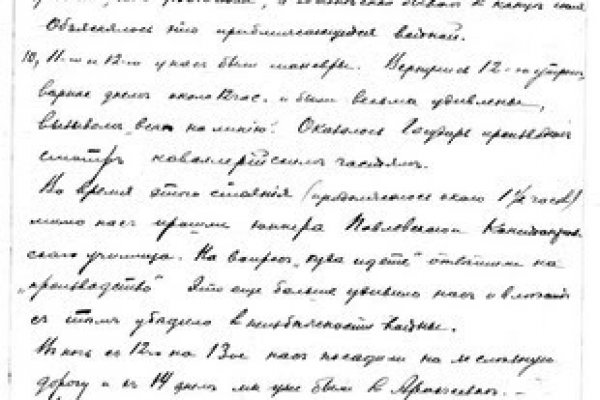 Объяснялось это приближающейся войной.
10, 11-го и 12-го у нас были маневры. Вернулись 12-го утром,
вернее днем около 12 час. и были весьма удивлены,
вызовом "всех на линию". Оказалось Государь производит
смотр кавалерийским частям.
Во время этого стояния (продолжалось около 1½ часов)
мимо нас прошли юнкера Павловского
ского училища. На вопрос "куда идете" ответили на
"производство". Это еще больше удивило нас и
с тем убедило в неизбежности войны.
В ночь с 12-го на 13-ое нас посадили на железную
дорогу и в 14 днем мы уже были в